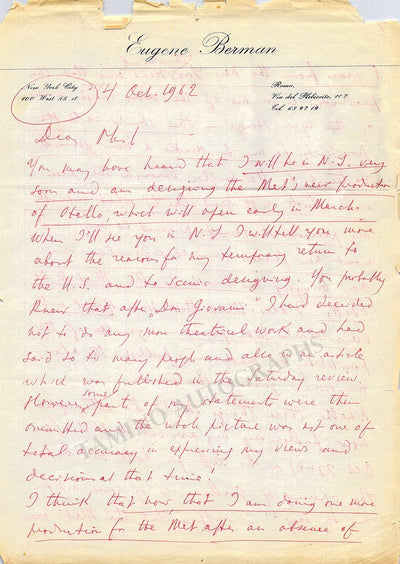 Eugene Berman
New York City
100 West 55 st.
Roma,
Via del Plebiscito, 107
Tel. 68 97 19
4 Oct. 1962
Dear
You may have heard that I will be in N.Y. very
soon and am designing the Met's new production
of Otello, which will open early in March.
When I'll see you in N.Y. I will tell you more
about the reasons for my temporary return to
the U.S. and to scenic designing. You probably
knew that after "Don Giovanni" I had decided
not to do any more theatrical work and had
said so to many people and also in an article
which was published in the Saturday review.
However, some part of my statement were then
ommitted and the whole picture was not one of
total accuracy in expressing my views and
decisions at that time!
I think that now, that I am doing one more
production for the Met after an absence of
TAMINO AUTOGRAPHS